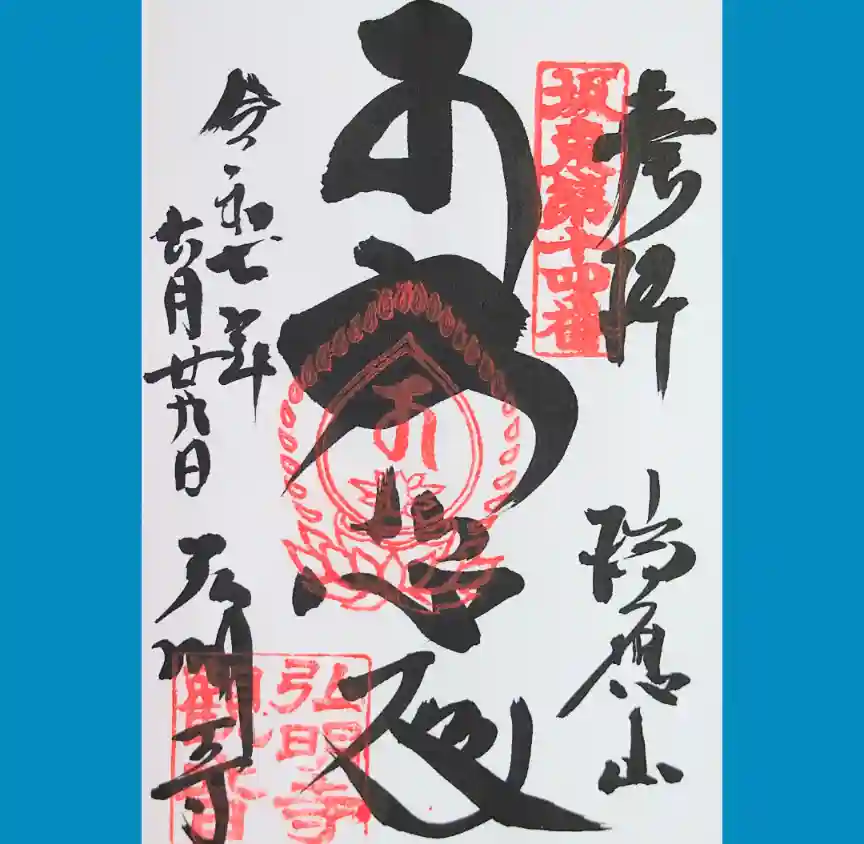 奉拝
坂東第十四番
瑞應山
大悲殿
令和七年
六月廿九日
弘明寺
弘明寺
觀音